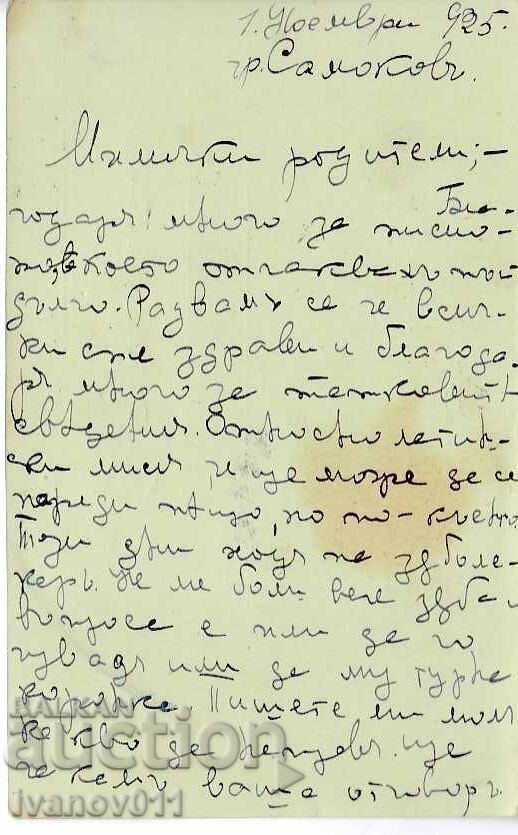 1. Ноември 925.
гр. Самоковъ.
Милички родители;-
Бла-
годаря много за писмо-
което отчаквахъ
дълго. Радвамъ се че всич-
ки сте здрави и благода-
ря много за
сведения. Относно латин-
ски мисля че ще може да се
нареди нещо, но по-късно.
Този день ходя на зъболе-
каръ. Не ме боли вече зъба и
въпроса е или да го
извадя или да му туря
коронка. Пишете ми моля
какво да направя. Ще
чакамъ ваша отговоръ.
БАЛКАН
auction
ivanov011